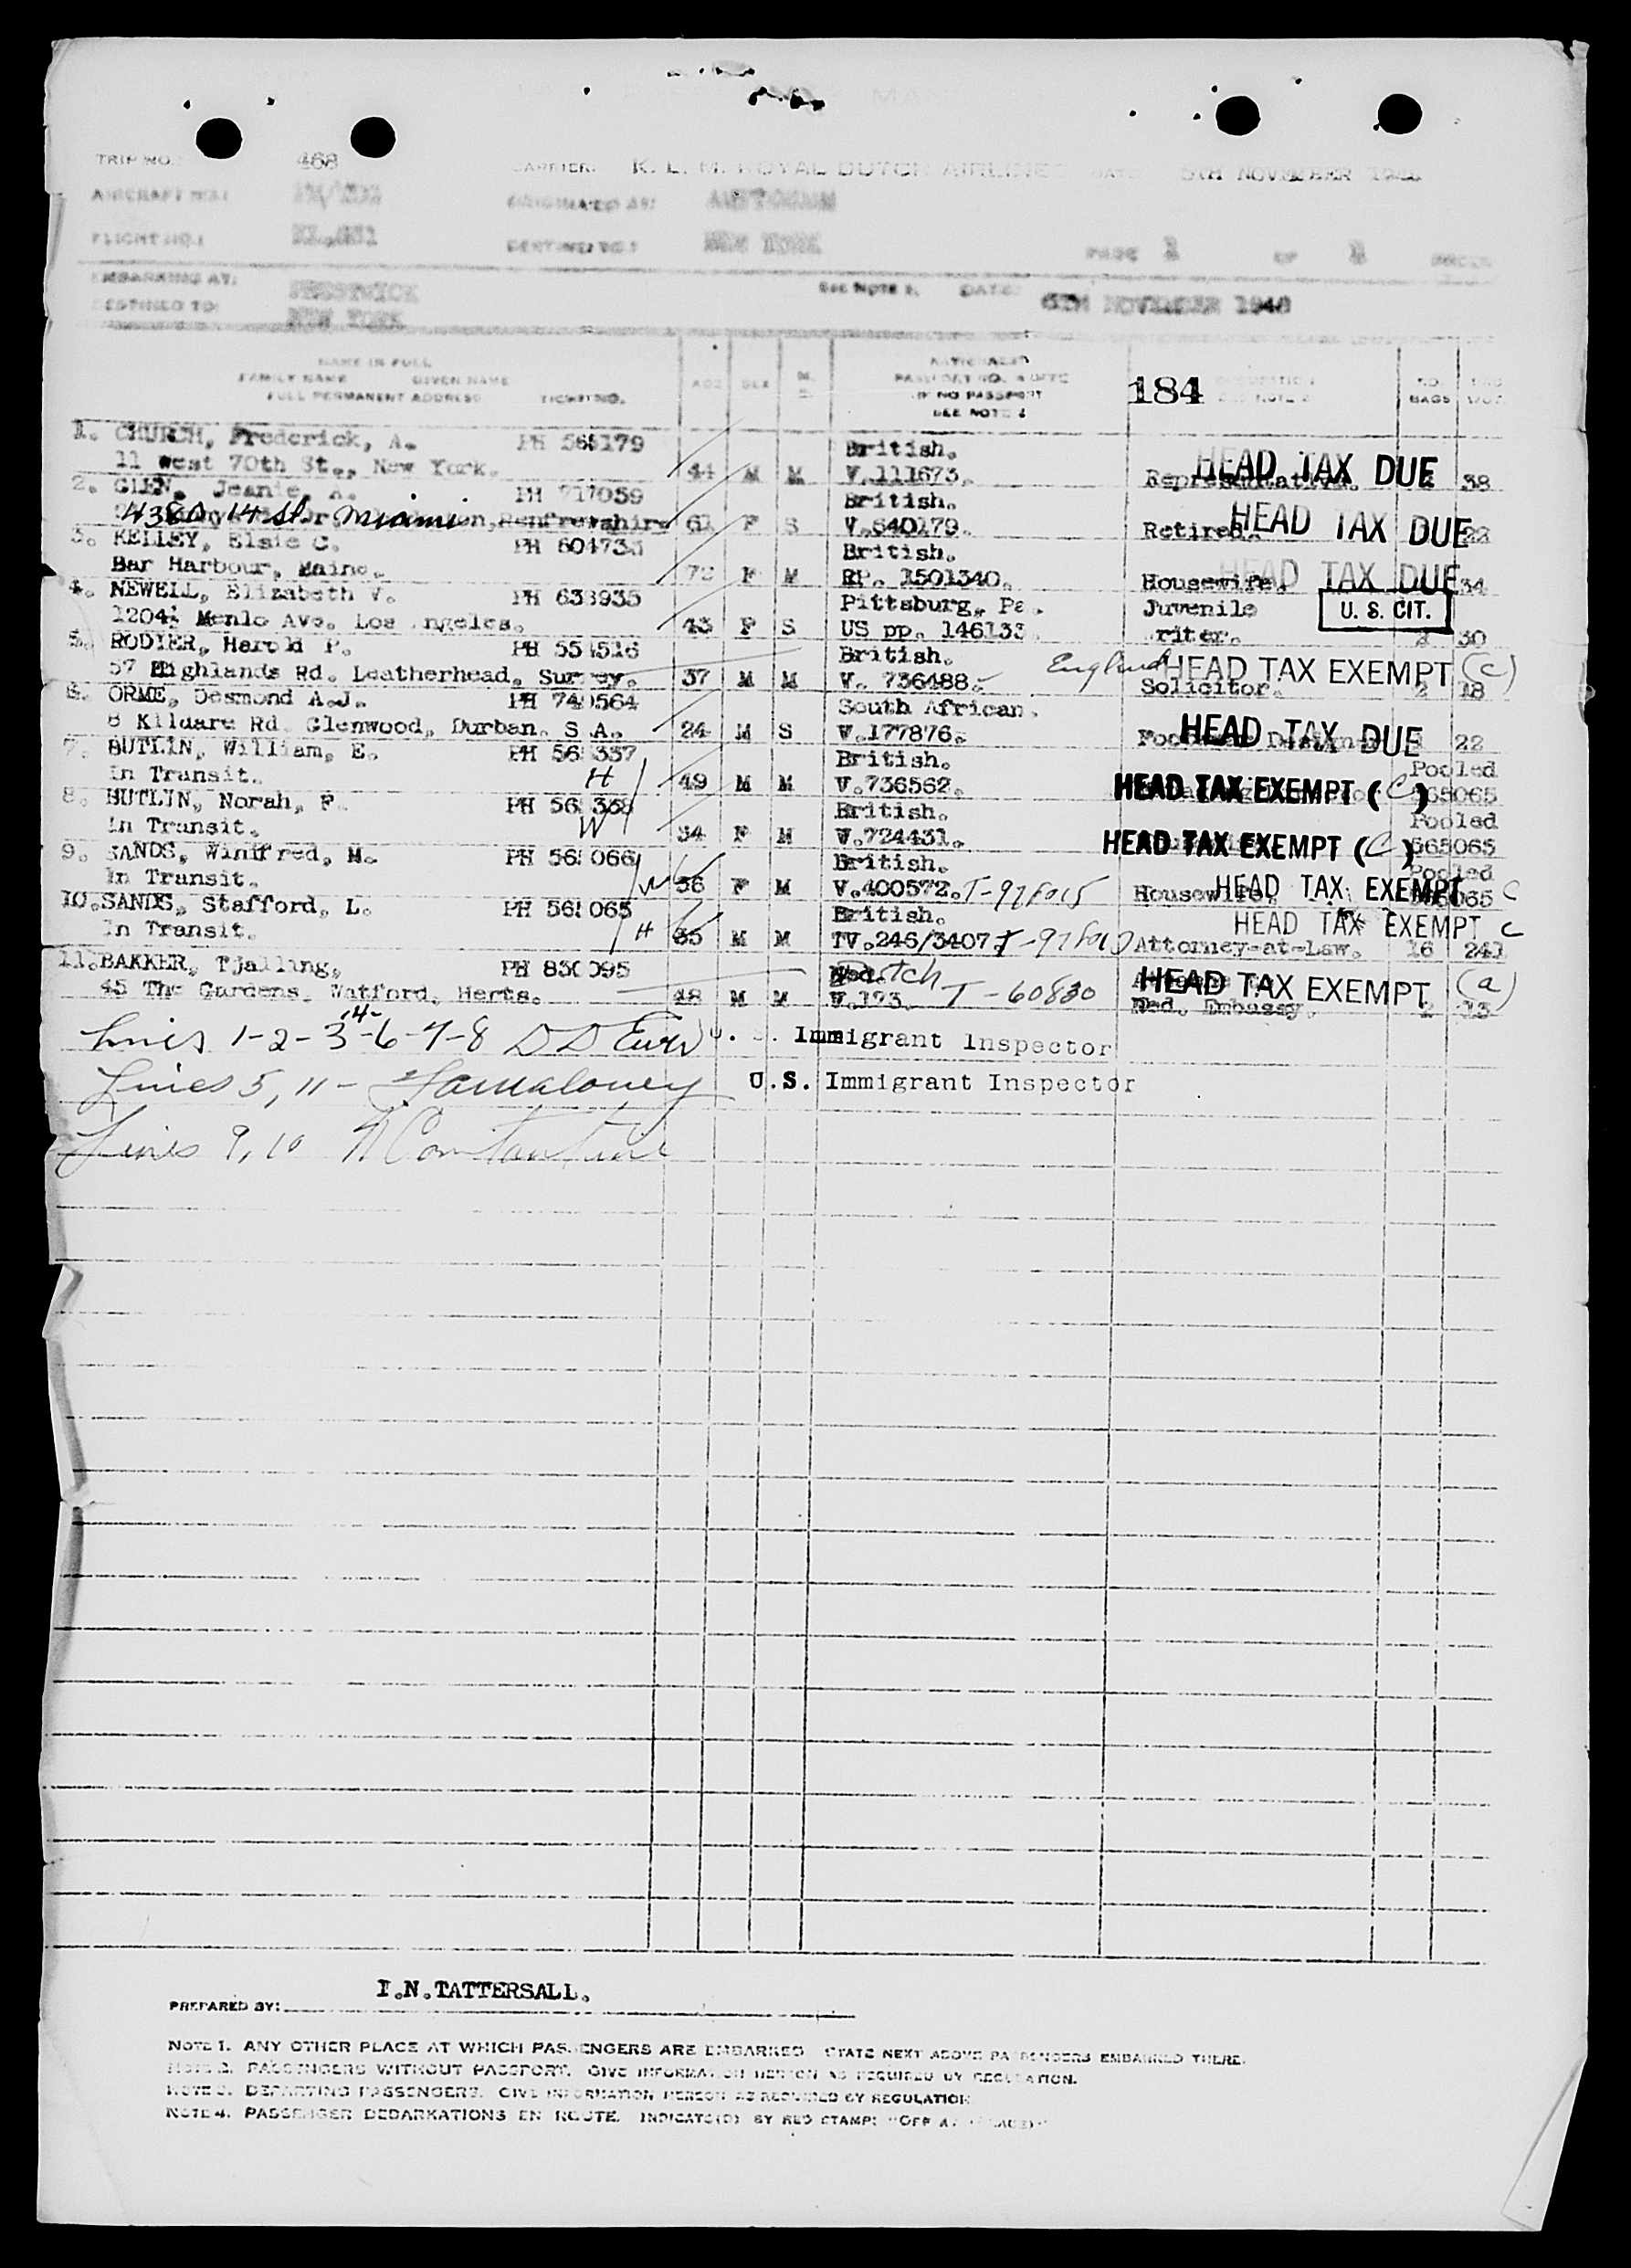 TRIP NO. 468 CARRIER. K. L. M. ROYAL DUTCH AIRLINES DATE 5TH NOVEMBER 1948
AIRCRAFT NO. ORIGINATED AT: AMSTERDAM
FLIGHT NO. DESTINED TO: NEW YORK PAGE 1 OF
EMBARKING AT: PRESTWICK See Note 1. DATE: 6TH NOVEMBER 1948
DESTINED TO: NEW YORK
NAME IN FULL NATIONALITY
FAMILY NAME GIVEN NAME AGE SEX M. PASSPORT NO. 184 NO.
FULL PERMANENT ADDRESS TICKET NO. IF NO PASSPORT BAGS
SEE NOTE 2
1. CHURCH, Frederick, A. PH 568179 British.
11 West 70th St., New York. 44 M M V.111673. Representative. HEAD TAX DUE 38
2. GLEN, Jeanie, A. PH 717059 British.
4380 14 St. Miami Renfrewshire 61 F S V.640179. Retired. HEAD TAX DUE 22
3. KELLEY, Elsie C. PH 604735 British.
Bar Harbour, Maine. F M RP. 1501340. Housewife. HEAD TAX DUE 34
4. NEWELL, Elizabeth V. PH 633935 Pittsburg, Pa. Juvenile U. S. CIT.
1204½ Menlo Ave. Los Angeles. 43 F S US pp. 146133. writer. 30
5. RODIER, Harold P. PH 554516 British. England HEAD TAX EXEMPT (C)
57 Highlands Rd. Leatherhead, Surrey. 37 M M V. 736488. Solicitor. 2 18
6. ORME, Desmond A.J. PH 740564 South African.
8 Kildare Rd. Glenwood, Durban. S.A. 24 M S V.177876. HEAD TAX DUE 22
7. BUTLIN, William, E. PH 56 337 British. Pooled
In Transit. H 49 M M V.736562. HEAD TAX EXEMPT (C) 565065
8. BUTLIN, Norah, F. PH 56 338 British. Pooled
In Transit. W 34 F M V.724431. HEAD TAX EXEMPT (C) 565065
9. SANDS, Winifred, M. PH 565066 British. Pooled
In Transit. W 36 F M V.400572. Housewife. HEAD TAX EXEMPT 565065 C
10. SANDS, Stafford, L. PH 565065 British. HEAD TAX EXEMPT C
In Transit. H 35 M M TV.246/3407. Attorney-at-Law. 16 241
11. BAKKER, Tjalling, PH 830095 Dutch HEAD TAX EXEMPT (a)
45 The Gardens. Watford, Herts. 48 M M V.193. T-60830 Ned. Embassy. 2 13
Lines 1-2-3-4-6-7-8 U. S. Immigrant Inspector
Lines 5, 11 - U.S. Immigrant Inspector
Lines 9, 10
PREPARED BY: I.N.TATTERSALL.
NOTE 1. ANY OTHER PLACE AT WHICH PASSENGERS ARE EMBARKED STATE NEXT ABOVE PASSENGERS EMBARKED THERE.
NOTE 2. PASSENGERS WITHOUT PASSPORT. GIVE INFORMATION HEREON AS REQUIRED BY REGULATION.
NOTE 3. DEPARTING PASSENGERS. GIVE INFORMATION HEREON AS REQUIRED BY REGULATION
NOTE 4. PASSENGER DEBARKATIONS EN ROUTE. INDICATE(D) BY RED STAMP: "OFF AT